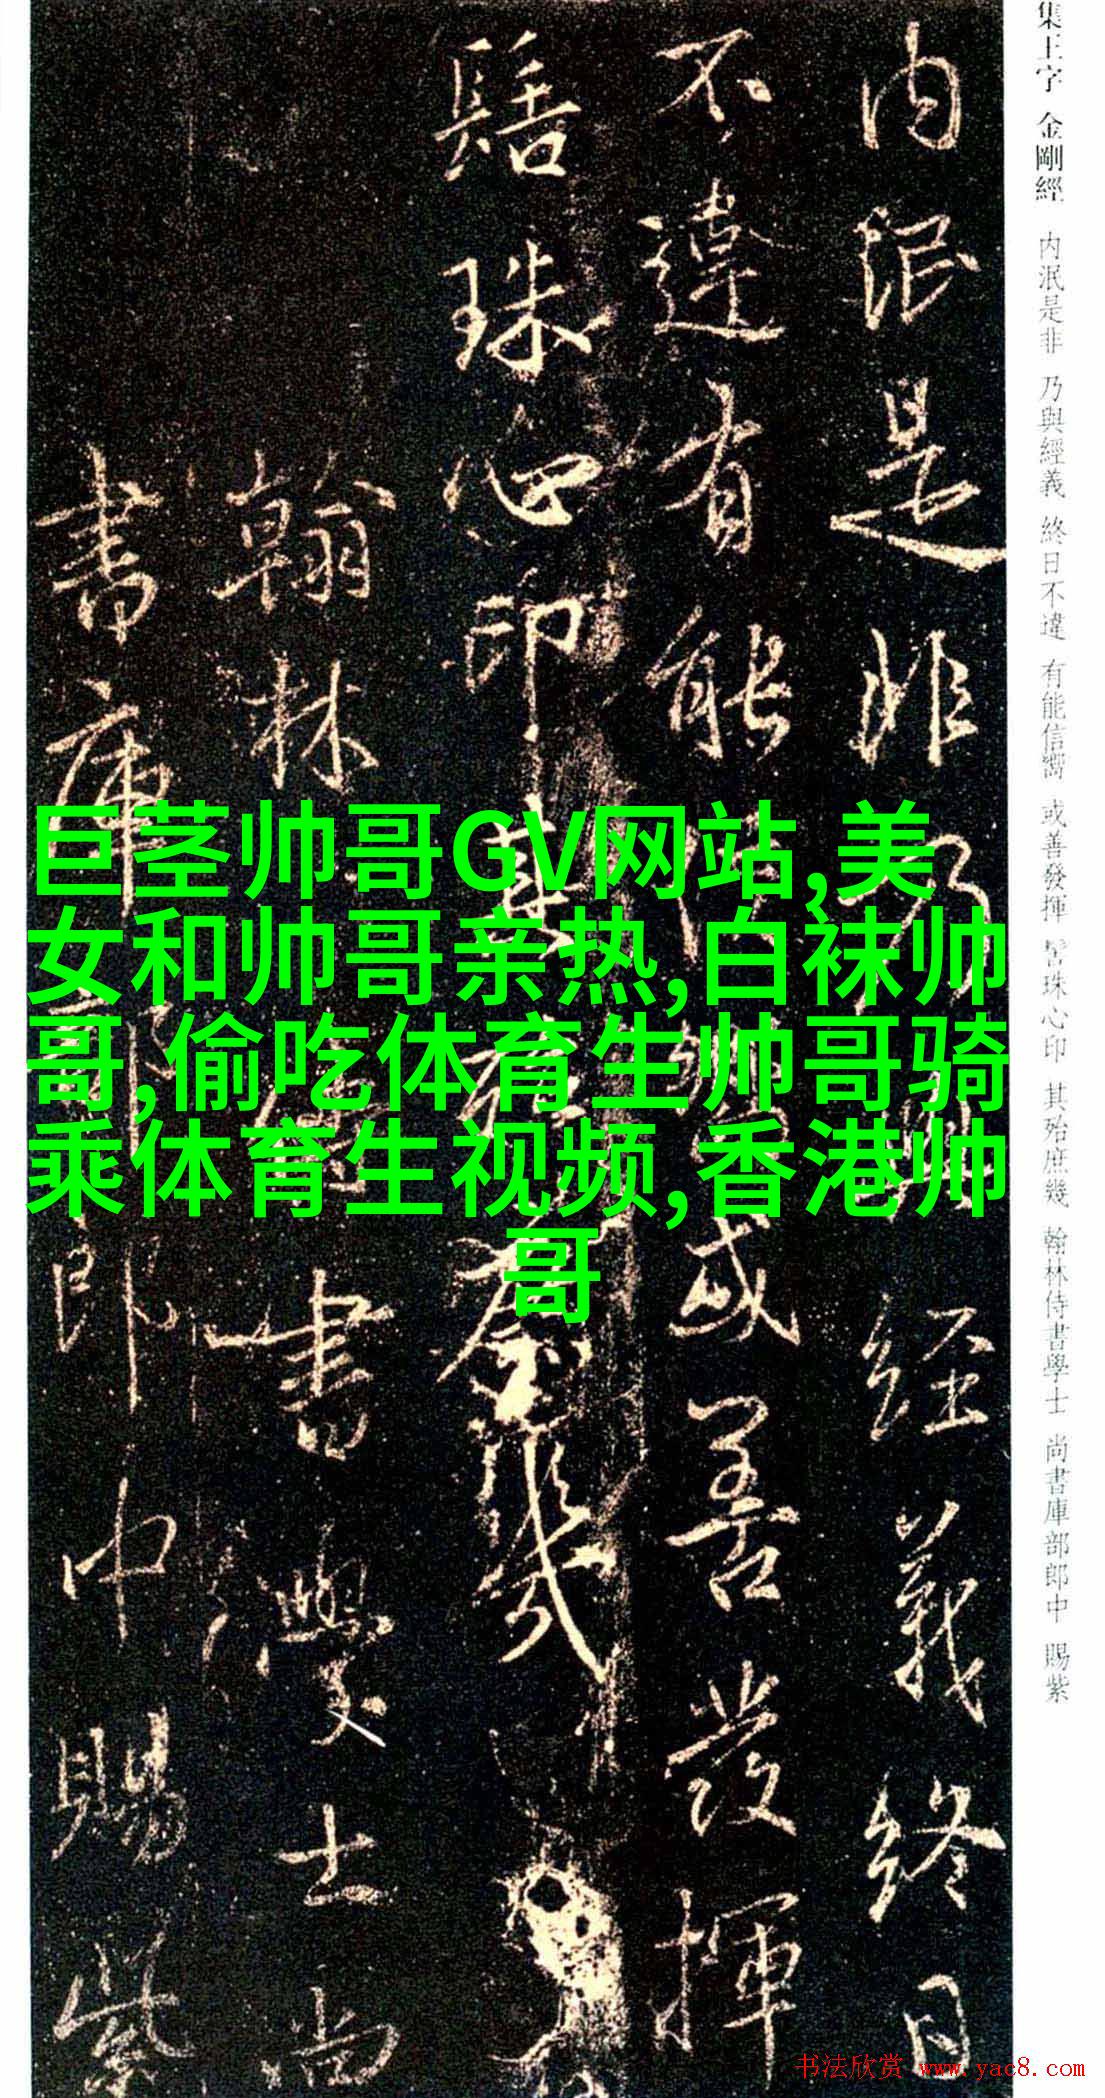 集王字 金剛經 内泯是非 乃與經義 終日不違 有能信嚮 或善發揮 髻珠心印 其殆庶幾 翰林侍書學士 尚書庫部郎中 賜紫
内泯是非乃與經義終日
不違有能信嚮或善發揮
髻珠心印其殆庶幾
翰林侍書學士尚
書庫部郎中賜紫
巨茎帅哥GV网站,美
女和帅哥亲热,白袜帅
哥,偷吃体育生帅哥骑
乘体育生视频,香港帅
哥
书法欣赏 www.yac8.com